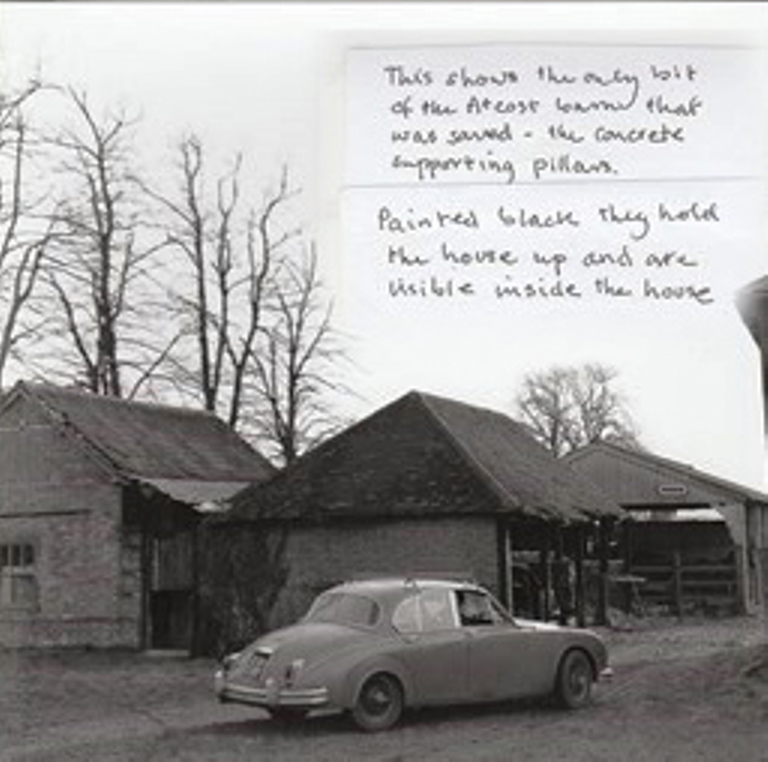 This shows the only bit
of the Atcost barn that
was saved - the concrete
supporting pillars.
Painted black they hold
the house up and are
visible inside the house